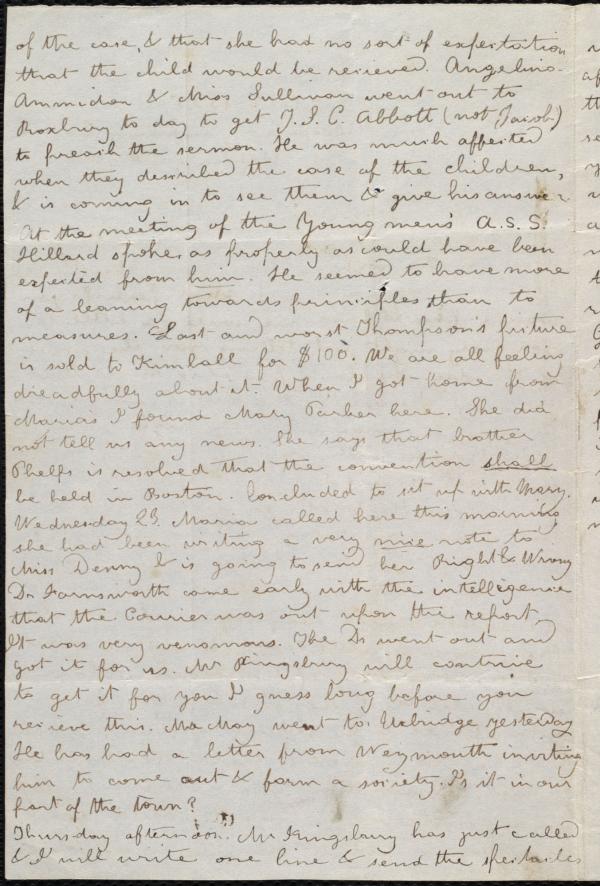 of the case, & that she had no sort of expectation
that the child would be recieved. Angelina
Ammidon & Miss Sullivan went out to
Roxbury to day to get J. S. C. Abbott (not Jacob)
to preach the sermon. He was much affected
when they described the case of the children,
& is coming in to see them & give his answer
At the meeting of the Young men's A.S.S.
Hillard spoke, as properly as could have been
expected from him. He seemed to have more
of a leaning towards principles than to
measures. Last and worst Thompson's picture
is sold to Kimball for $100. We are all feeling
dreadfully about it. When I got home from
Maria's I found Mary Parker here. She did
not tell us any news. She says that brother
Phelps is resolved that the convention shall
be held in Boston. Concluded to sit up with Mary.
Wednesday 23. Maria called here this morning
she had been writing a very nice note to
Miss Denny & is going to send her Right & Wrong
Dr Farnsworth came early with the intelligence
that the Courier was out upon the report,
It was very venomous. The Dr went out and
got it for us. Mr Kingsbury will contrive
to get it for you I guess long before you
recieve this. Mr May went to Uxbridge yesterday
He has had a letter from Weymouth inviting
him to come out & form a society. Is it in our
part of the town?
Thursday afternoon. Mr Kingsbury has just called
& I will write one line & send the spectacles